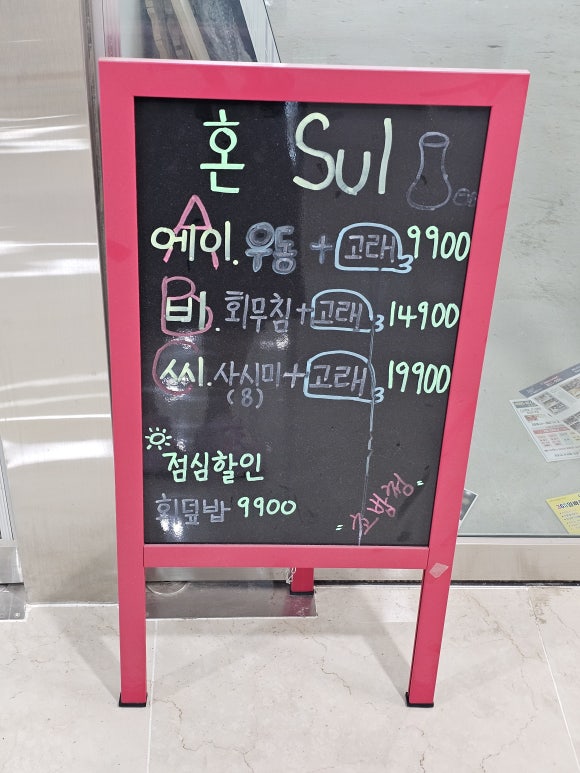 혼 Sul
A 에이. 우동 + 고래 9900
B 비. 회무침 + 고래 14900
C 씨. 사시미 + 고래 19900
(8)
점심할인
회덮밥 9900